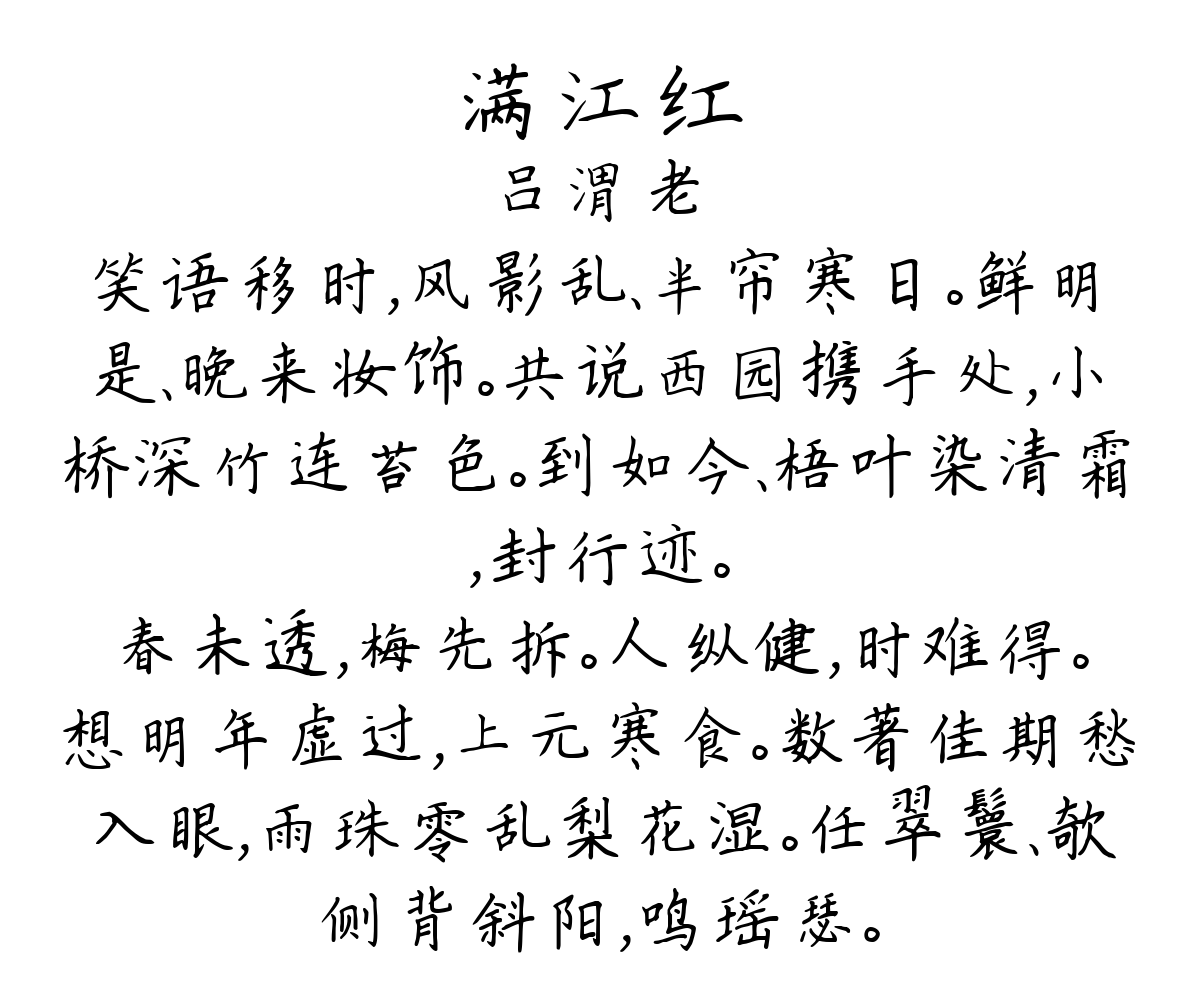 满江红
吕渭老
笑语移时,风影乱、半帘寒日。鲜明
是、晚来妆饰。共说西园携手处,小
桥深竹连苔色。到如今、梧叶染清霜
,封行迹。
春未透,梅先拆。人纵健,时难得。
想明年虚过,上元寒食。数著佳期愁
入眼,雨珠零乱梨花湿。任翠鬟、欹
侧背斜阳,鸣瑶瑟。